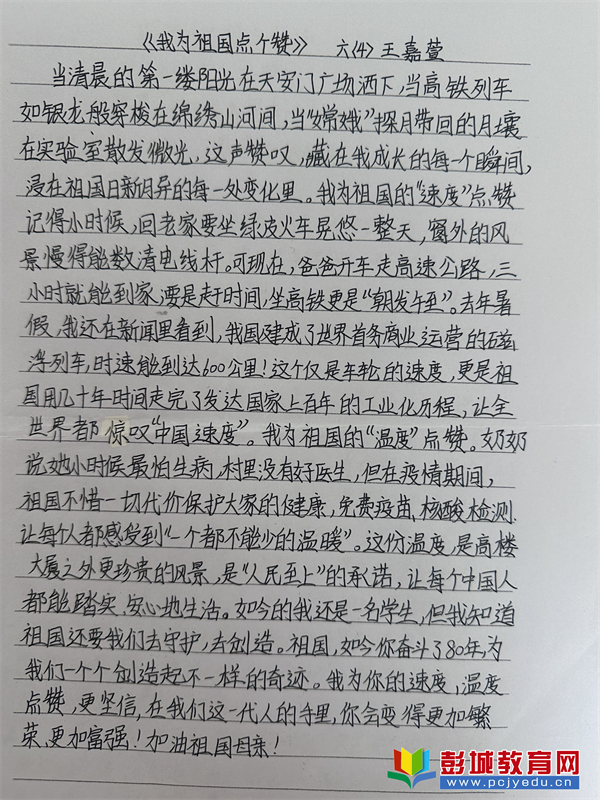 《我为祖国点个赞》 六(4) 王嘉萱
当清晨的第一缕阳光在天安门广场洒下,当高铁列车
如银龙般穿梭在绵绣山河间,当“嫦娥”探月带回的月壤
在实验室散发微光,这声赞叹,藏在我成长的每一个瞬间,
浸在祖国日新月异的每一处变化里。我为祖国的“速度”点赞
记得小时候,回老家要坐绿皮火车晃悠一整天,窗外的风
景慢得能数清电线杆。可现在,爸爸开车走高速公路,三
小时就能到家,要是赶时间,坐高铁更是“朝发午至”。去年暑
假,我还在新闻里看到,我国建成了世界首务商业运营的磁
浮列车,时速能到达600公里!这个仅是车轮的速度,更是祖
国用几十年时间走完了发达国家上百年的工业化历程,让全
世界都惊叹“中国速度”。我为祖国的“温度”点赞。奶奶
说她小时候最怕生病,村里没有好医生,但在疫情期间,
祖国不惜一切代价保护大家的健康,免费疫苗、核酸检测、
让每个人都感受到“一个都不能少的温暖”。这份温度,是高楼
大厦之外更珍贵的风景,是“人民至上”的承诺,让每个中国人
都能踏实、安心地生活。如今的我还是一名学生,但我知道
祖国还要我们去守护,去创造。祖国,如今你奋斗了80年,为
我们一个个创造起不一样的奇迹。我为你的速度,温度
点赞,更坚信,在我们这一代人的手里,你会变得更加繁
荣、更加富强!加油祖国母亲!
彭城教育网
www.pcjyedu.com